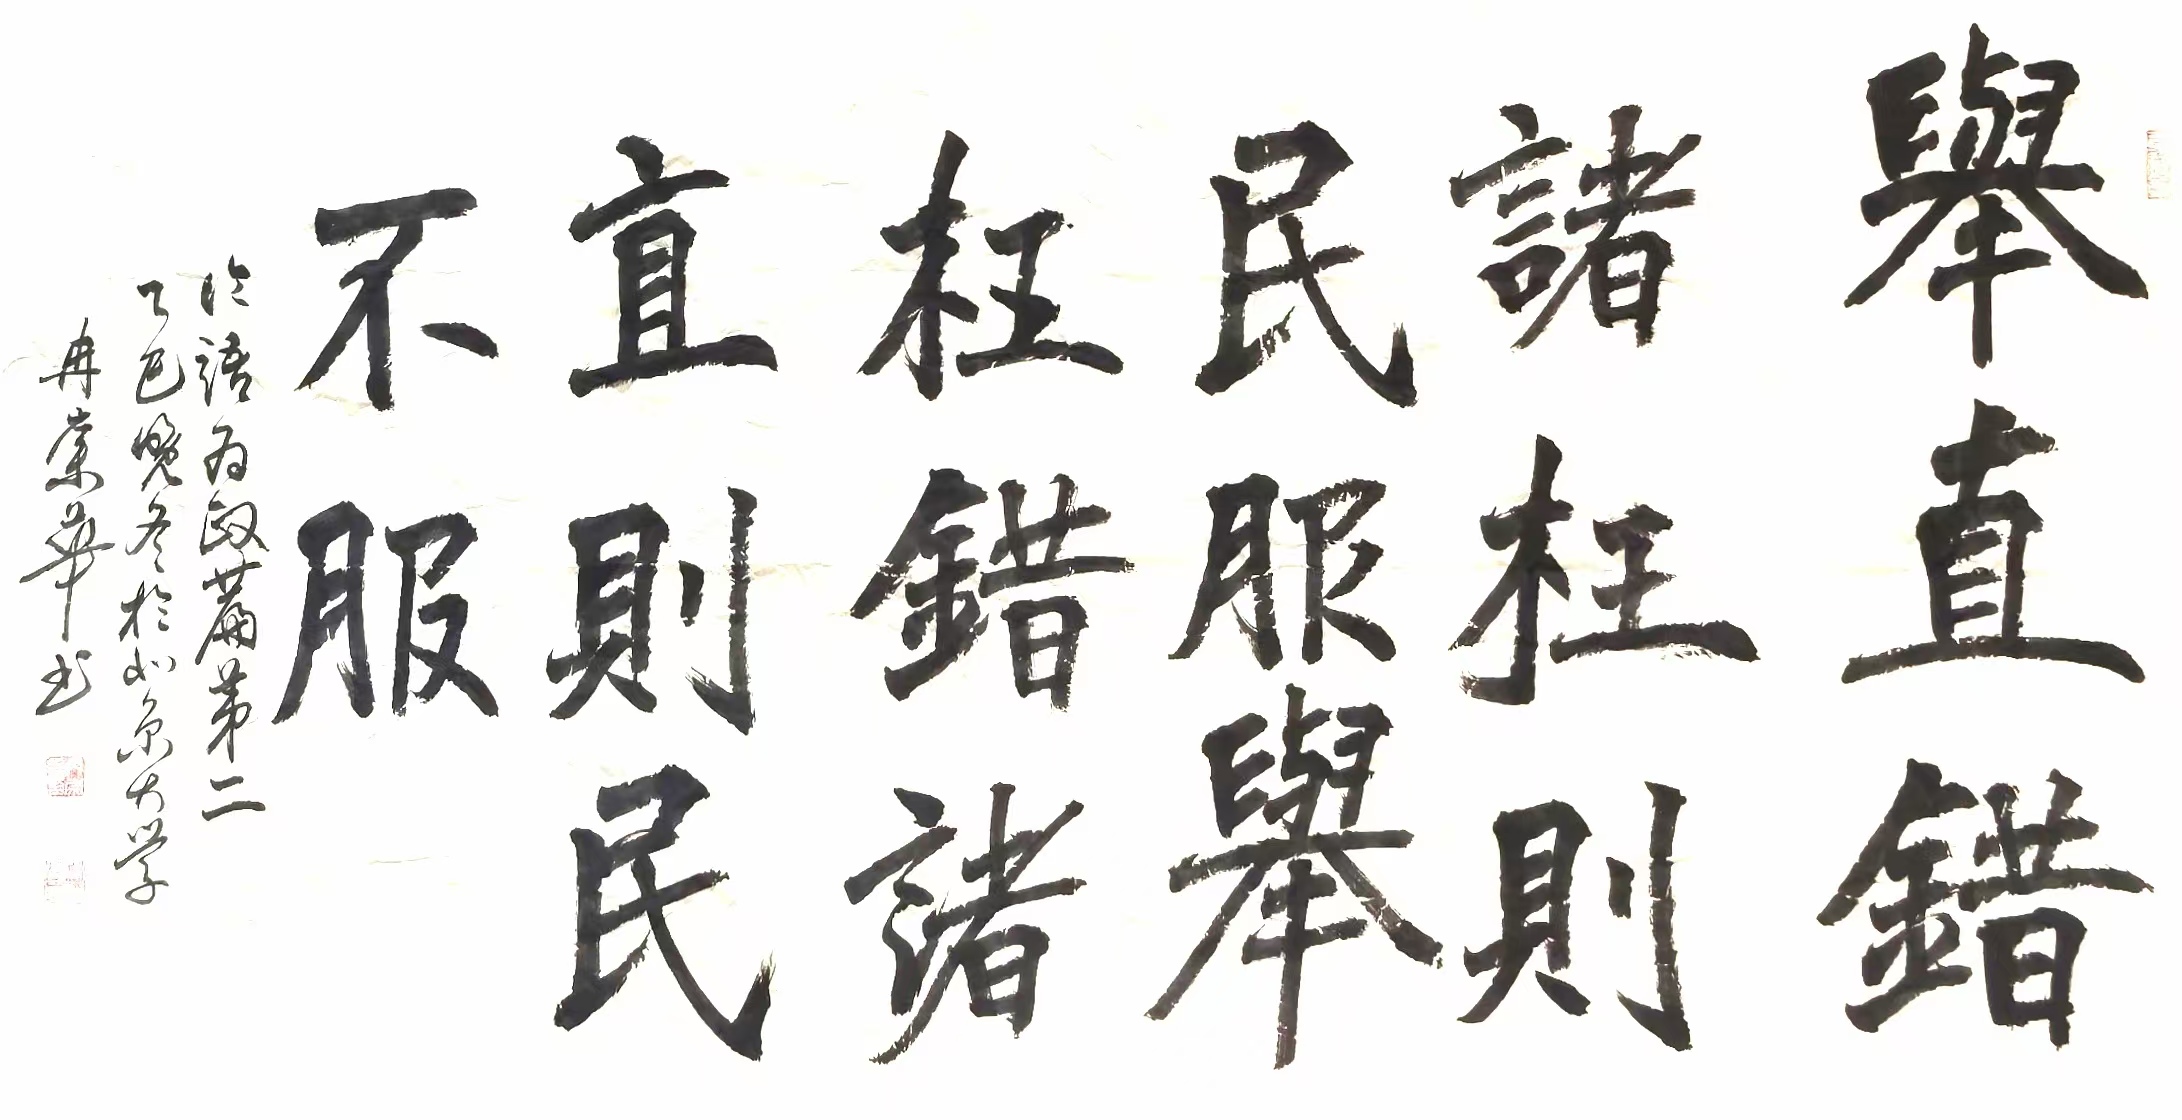 舉直錯
諸枉則
民服舉
枉錯諸
直則民
不服
論語為政篇第二
乙巳晚冬於北京大学
冉崇華书